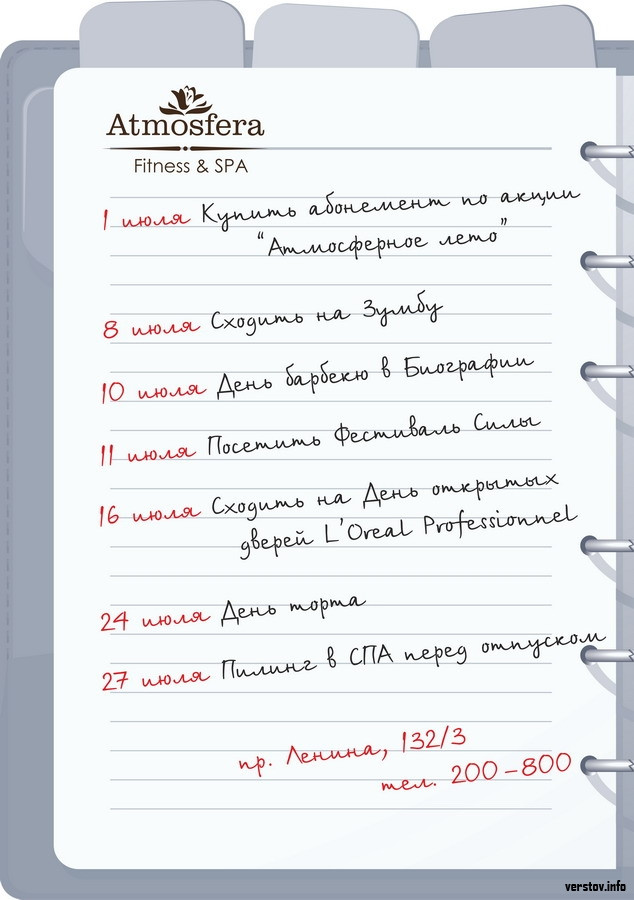 Atmosfera
Fitness & SPA
1 июля Купить абонемент по акции
“Атмосферное лето”
8 июля Сходить на Зумбу
10 июля День барбекю в Биографии
11 июля Посетить Фестиваль Силы
16 июля Сходить на День открытых
дверей L'Oreal Professionnel
24 июля День торта
27 июля Пилинг в СПА перед отпуском
пр. Ленина, 132/3
тел. 200-800
verstov.info